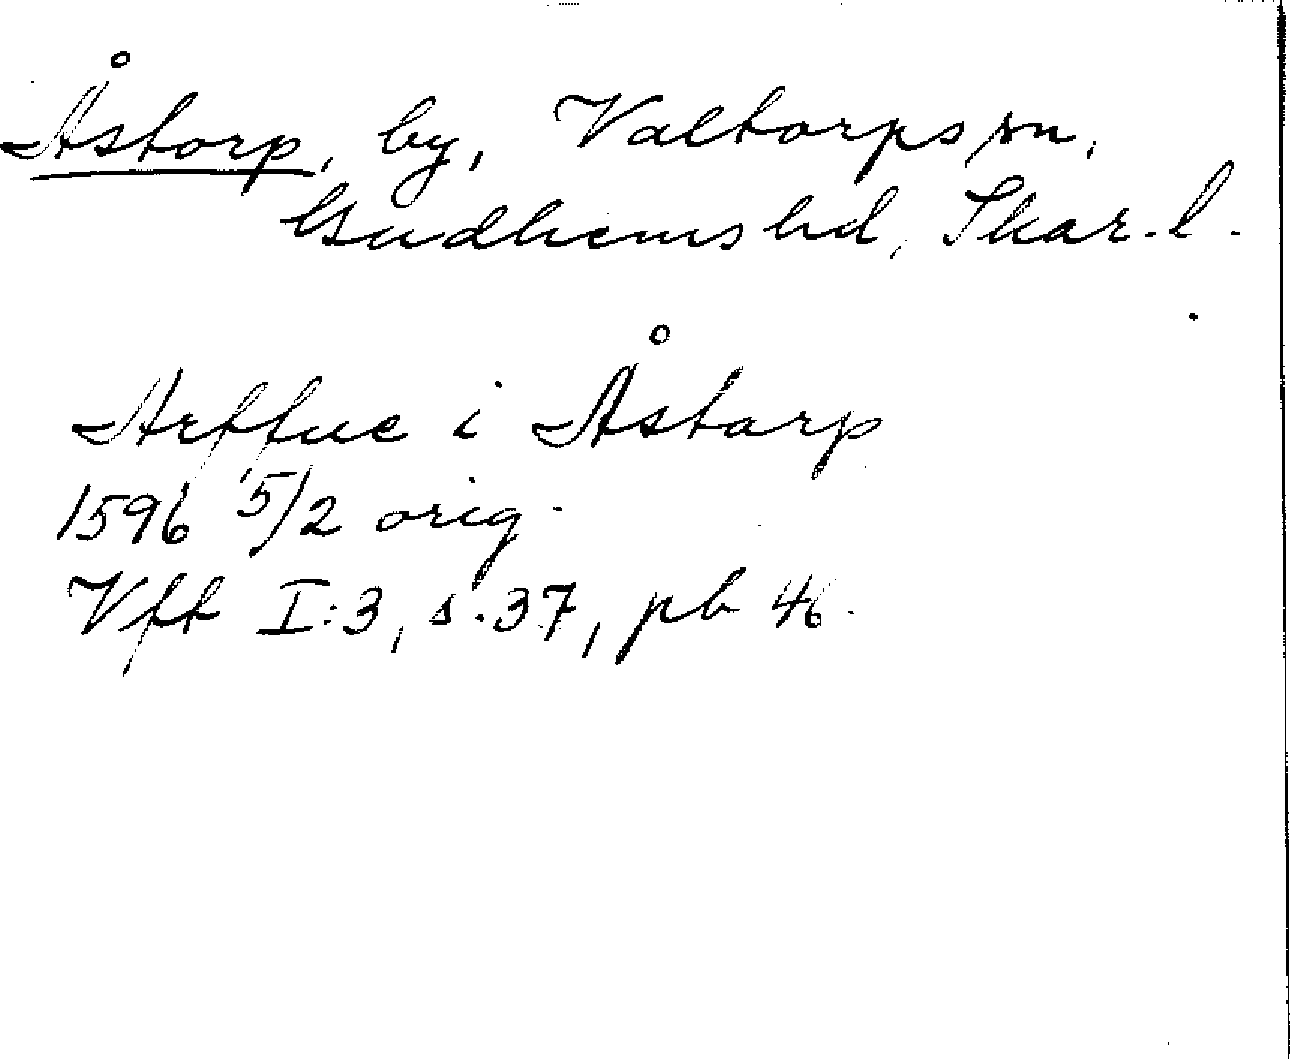 Åstorp, by, Valtorps sn,
Gudhems hd, Skar. l.
Arffue i Åstorp
1596 5/2 orig.
Vff I:3, s. 37, pb 46.